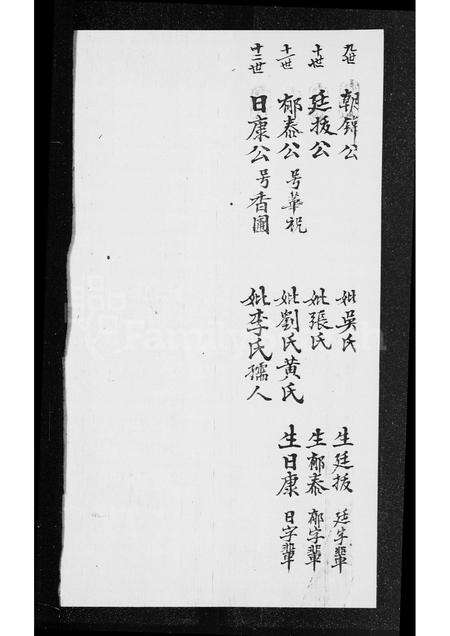 九世 朝錦公 妣吳氏 生廷拔 廷字輩
十世 廷拔公 妣張氏 生郁泰 郁字輩
十一世 郁泰公 号華祝 妣劉氏黄氏 生日康 日字輩
十二世 日康公 号香圃 妣李氏孺人